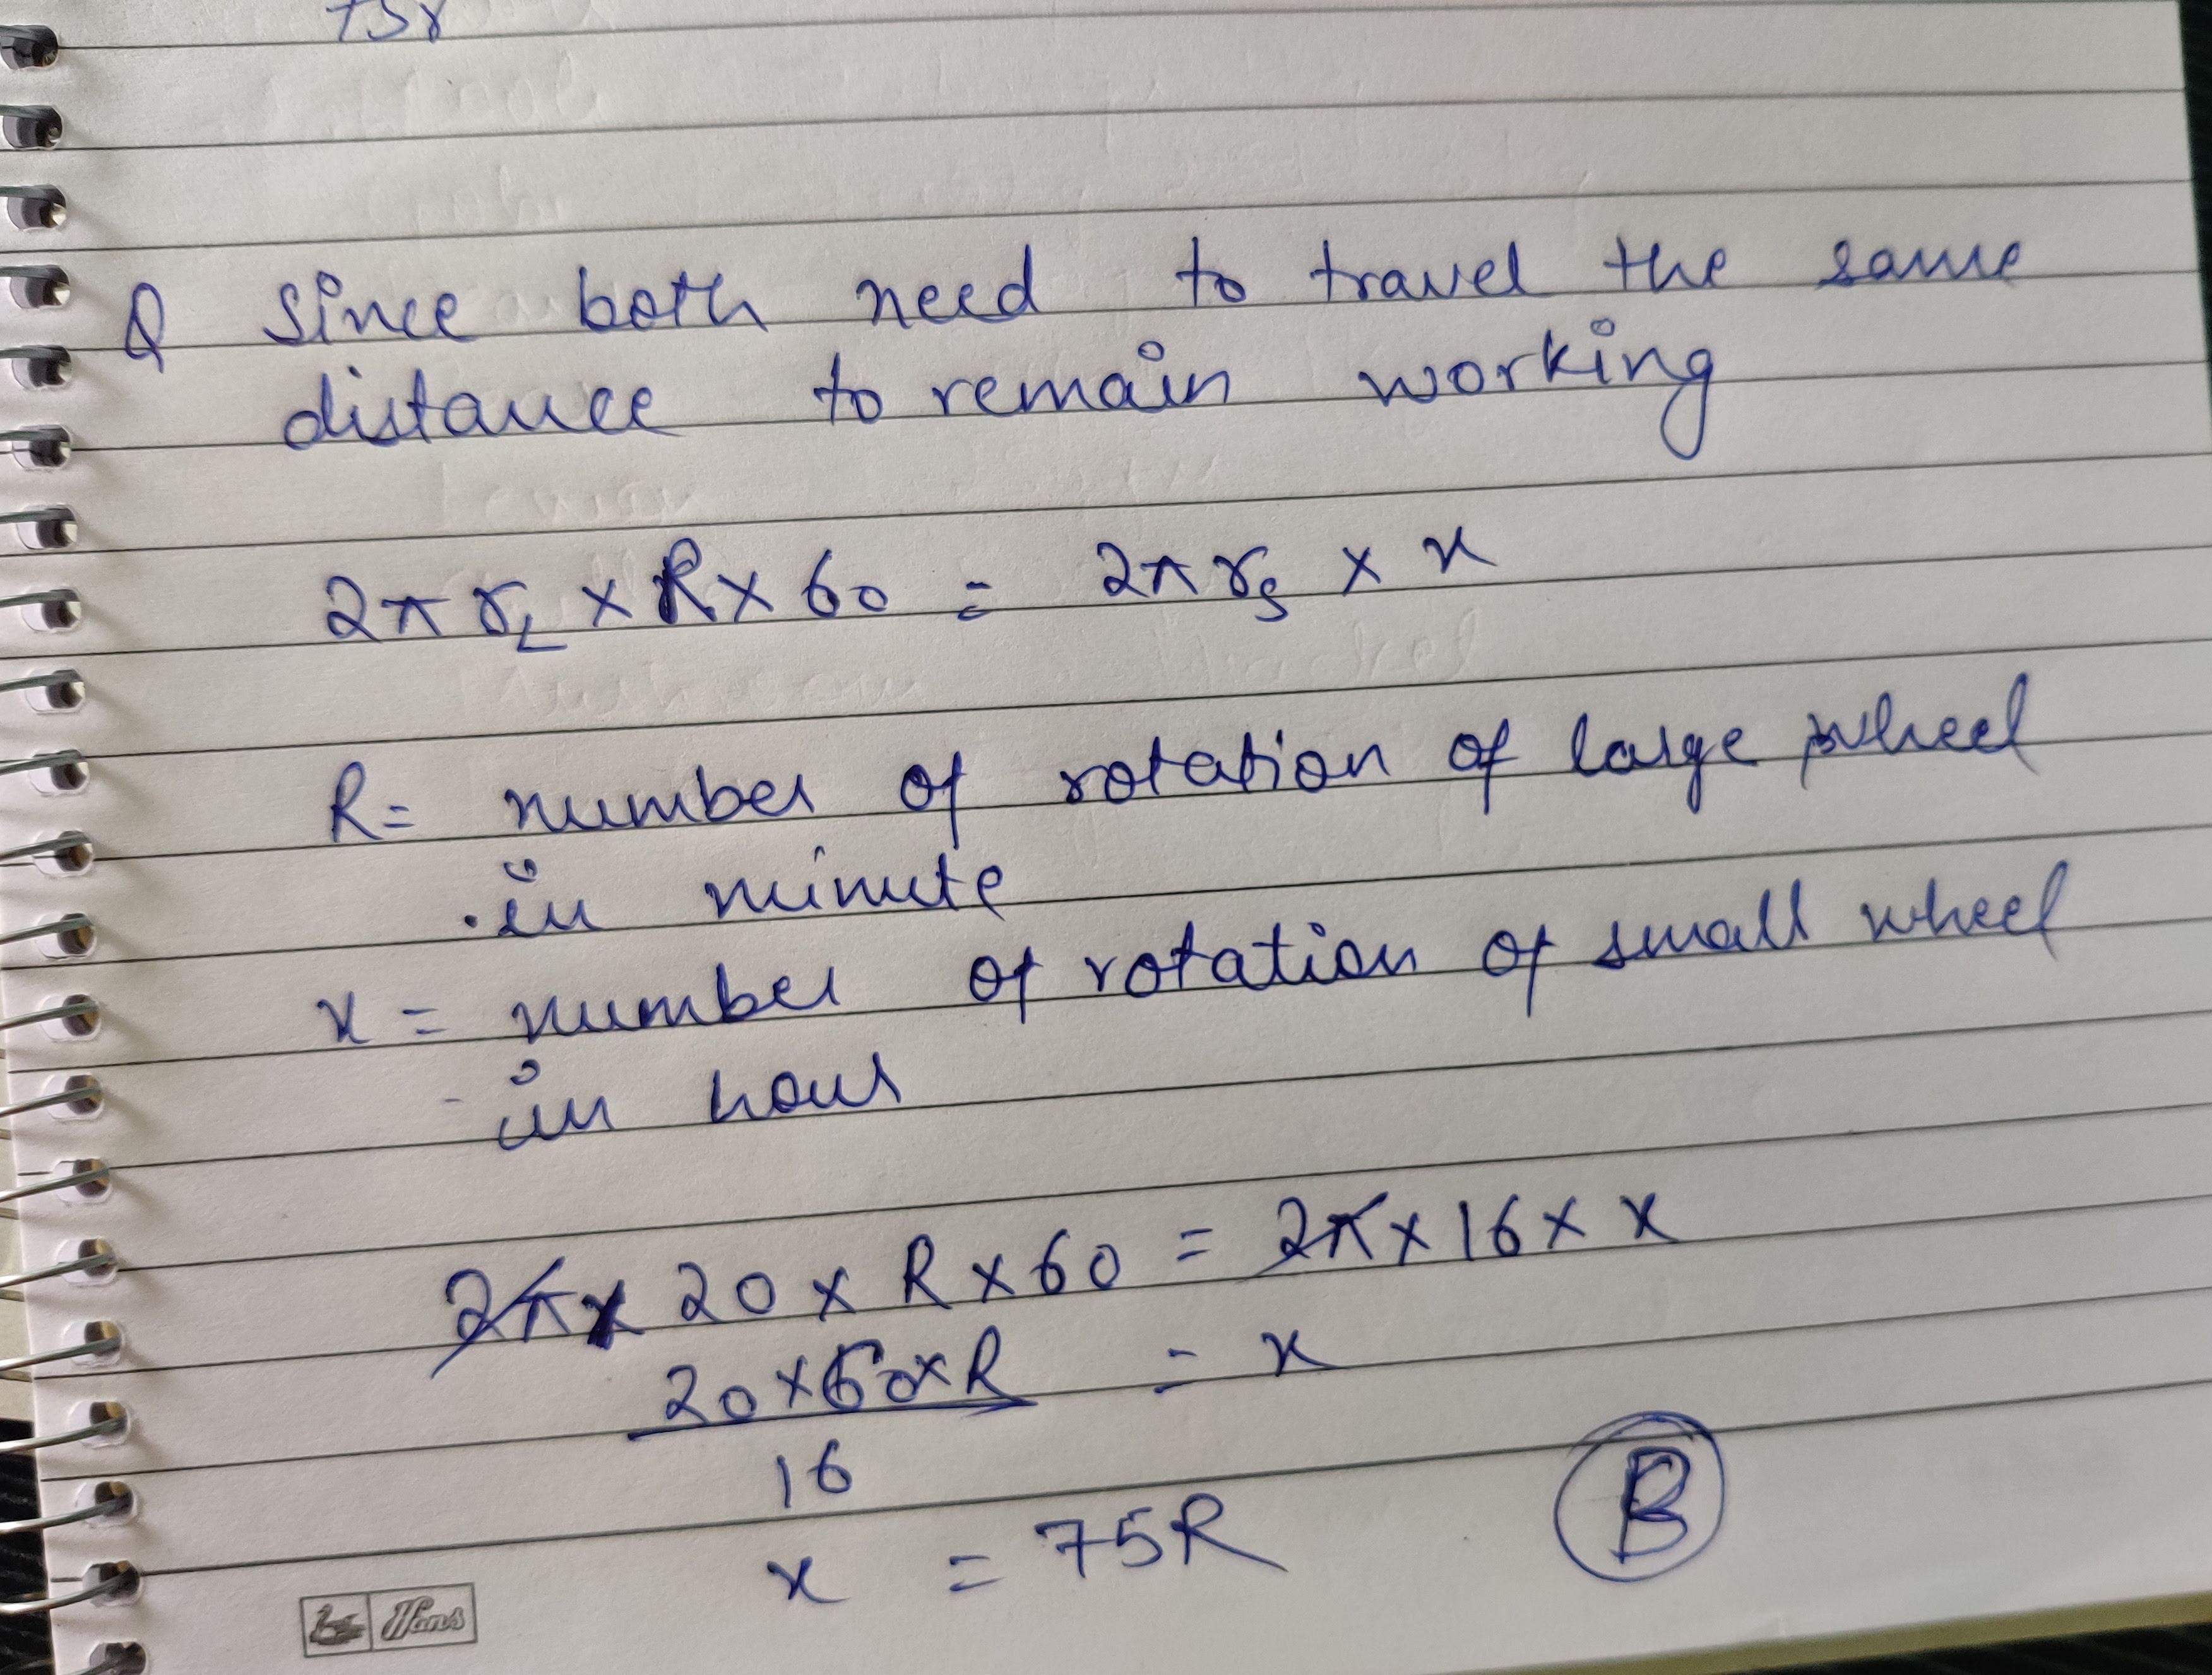 75r
Q Since both need to travel the same
distance to remain working
2π r_L × R × 60 = 2π r_s × x
R = number of rotation of large wheel
in minute
x = number of rotation of small wheel
in hour
2π × 20 × R × 60 = 2π × 16 × x
20 × 60 × R = x
16
x = 75R
B
Hans